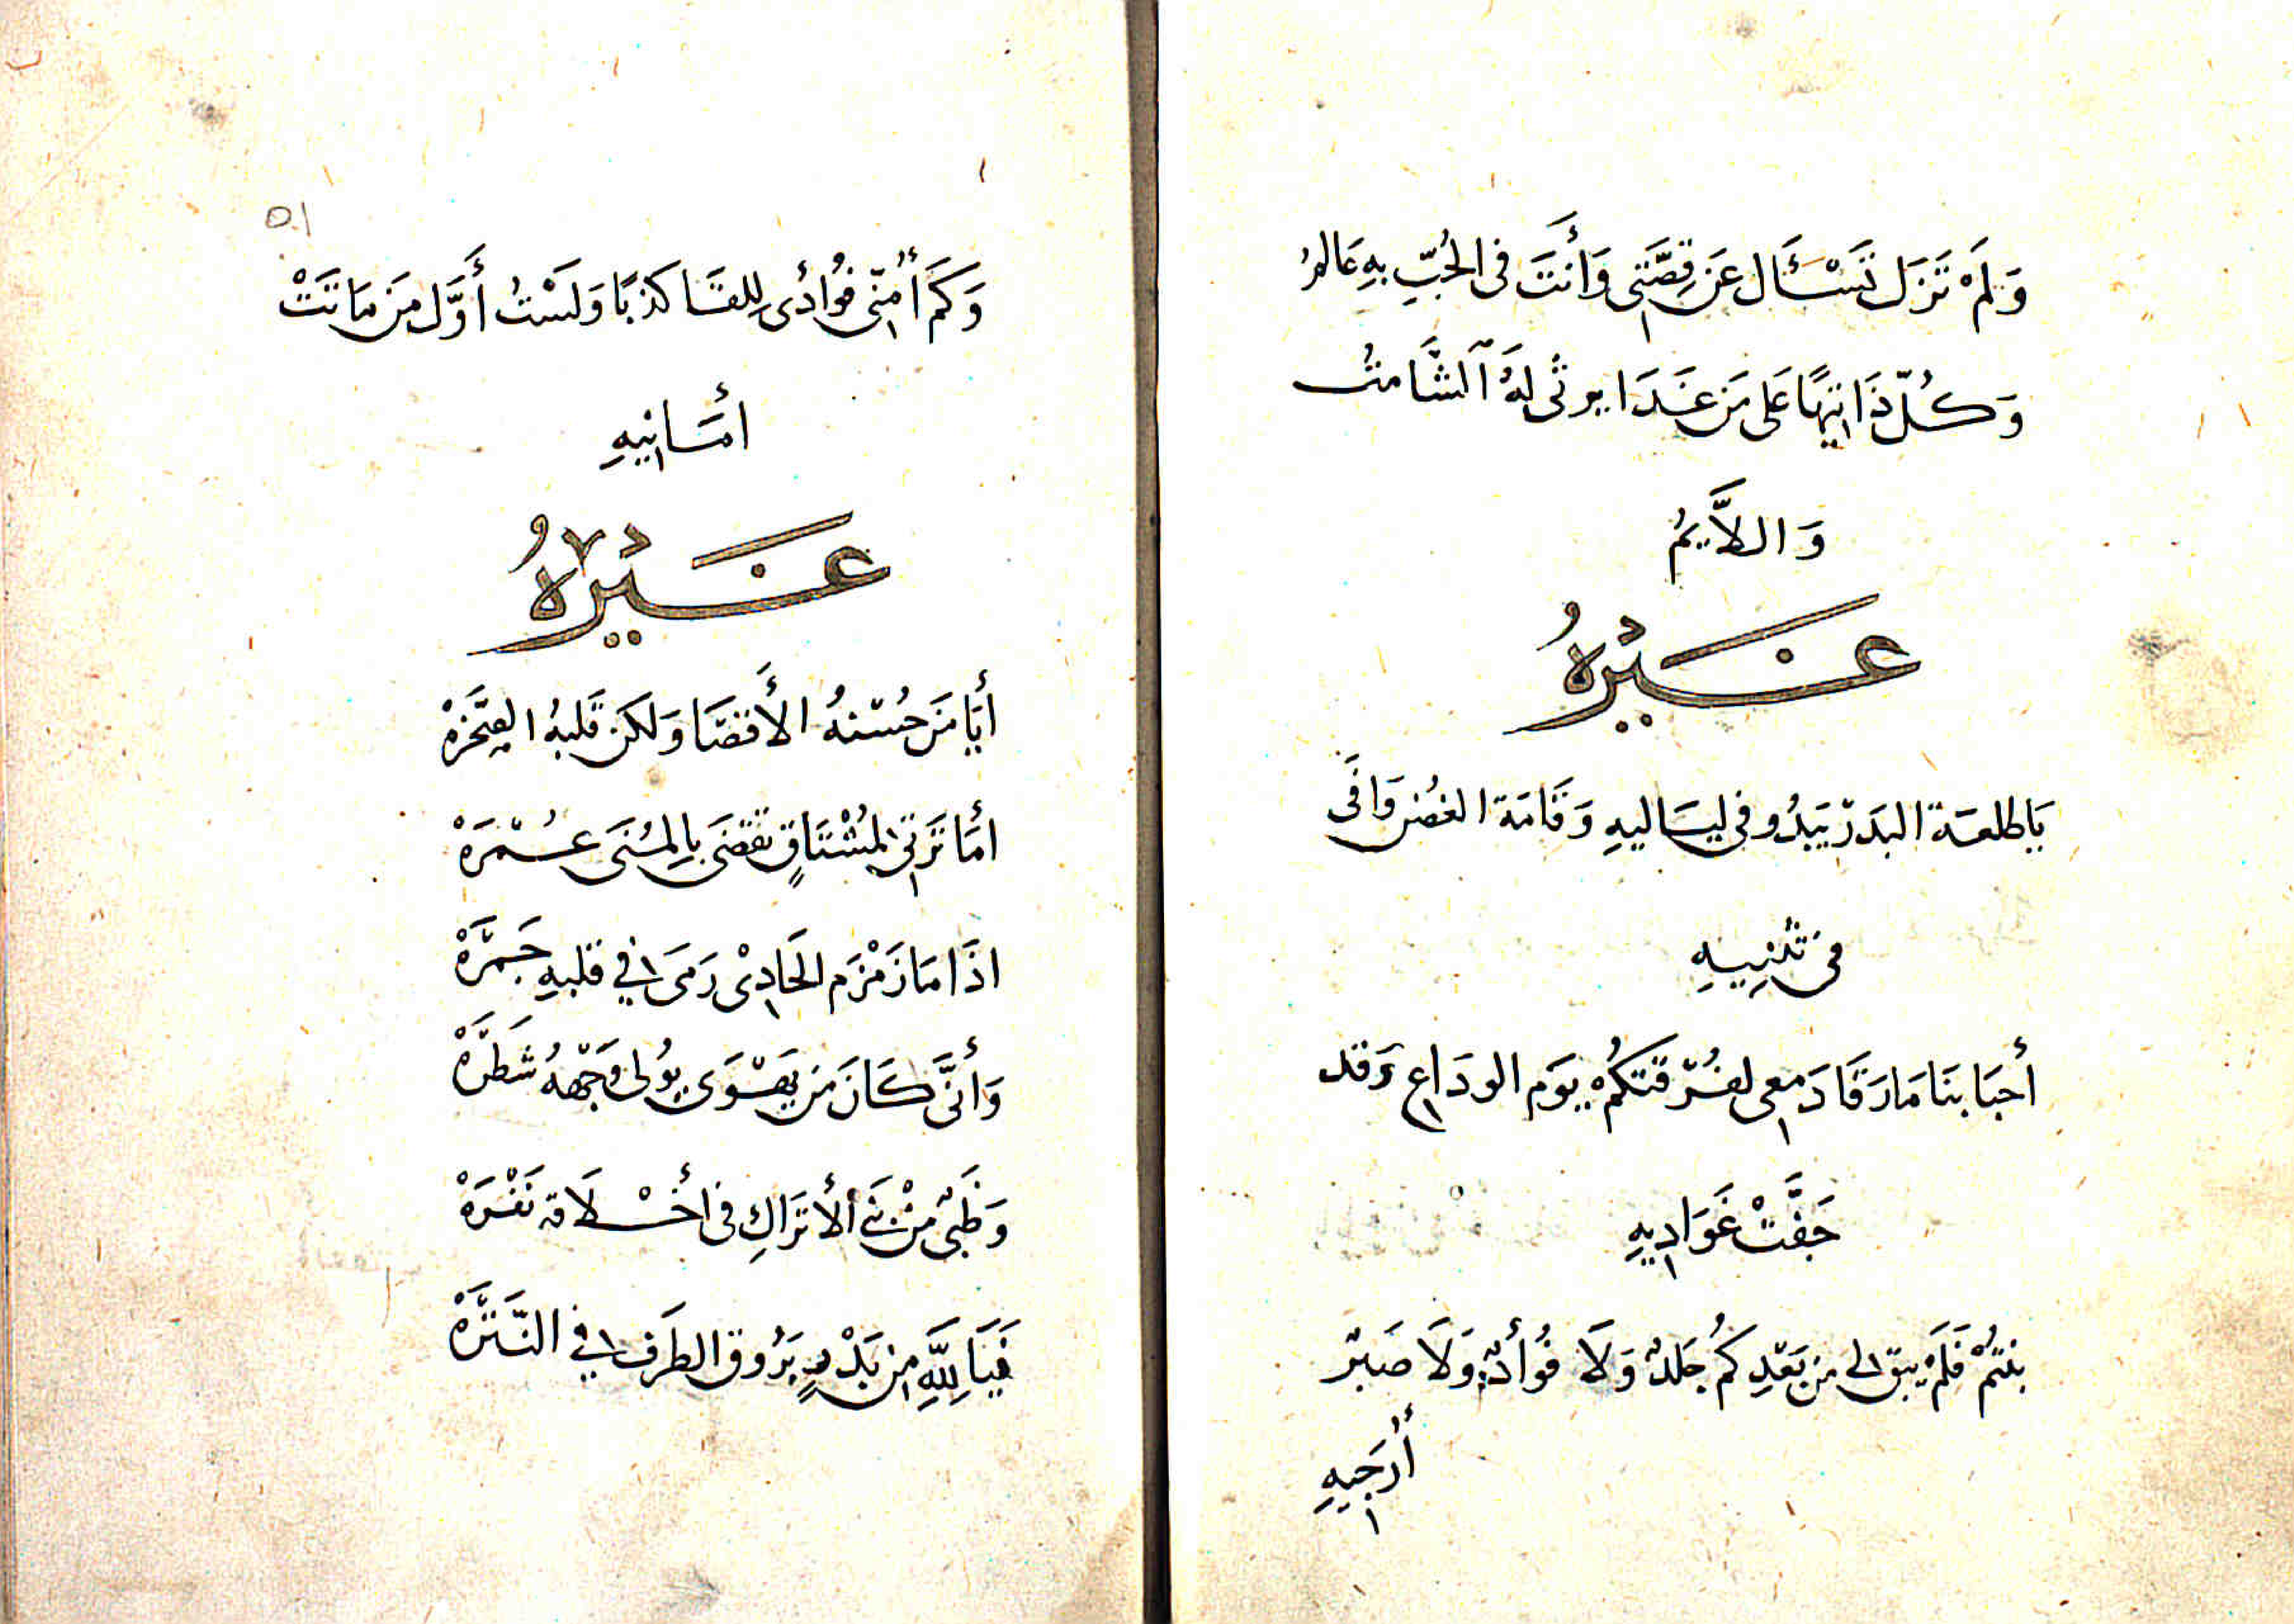 وَلَمْ تَزَل تَسْئَال عَن قِصَّتِى وَأَنتَ فى الحُبِّ بِهِ عَالمُ
وَكُلّ ذَا تِيهًا عَلى مَن غَدَا يرثى لَهُ الشَّامتُ
وَاللَّايمُ
غَيْرُهُ
يَا طلعة البَدر يَبدُو فى ليَاليهِ وَقَامَة الغصُن وَافَى
فى تَثنِيهِ
أحبَابنَا مَا رَقَا دَمعِى لفُرقتكُمْ يَوَم الودَاعِ وَقد
جَفَّتْ غَوَادِيهِ
بنتُمْ فَلَمْ يبق لى مِن بَعْدِكُم جلدٌ وَلَا فُوأدٌ وَلَا صَبْر
أُرَجيهِ
٥١
وَكَم أُمنِّى فُوادِى لِلقَا كذبًا وَلَسْتُ أوَّل مِن مَاتَتْ
أمَانِيهِ
غَيْرُهُ
أيَا مَن حُسْنهُ الأَقصَا وَلَكن قَلبهُ الصَّخرَهْ
أمَا تَرثى لِمُشْتَاقٍ تقضى بِالمُنَى عُمْرَهْ
اذَا مَا زَمْزَم الحَادِىْ رَمَى فِي قلبهِ جَمْرَهْ
وَأنَّى كَانَ مَن يَهْوَى يُولى وَجْههُ شَطْرَهْ
وَظَبىٌ مِنْ بَنى ألأتَرَاكِ فى أخْلَاقه نَفْرَهْ
فَيَا لِلَّهِ مِن بَدْرٍ يَرُوق الطَرف فِي النَّتْرَهْ